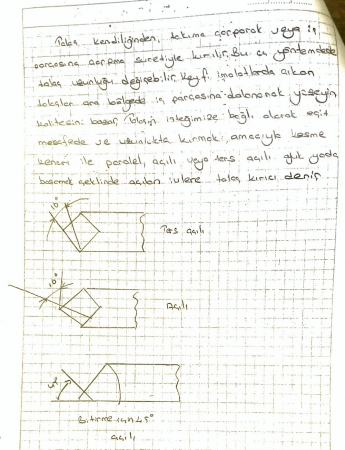 Talaş kendiliğinden, takıma çarparak veya iş
parçasına çarpma suretiyle kırılır. Bu üç yöntemdede
talaş uzunluğu değişebilir. Keyfi imalatlarda çıkan
talaşlar ara bölgede iş parçasına dolanarak yüzeyin
kalitesini bozar. Talaşın isteğimize bağlı olarak eşit
mesafede ve uzunlukta kırmak amacıyla kesme
kenarı ile paralel, açılı veya ters açılı oluk yada
basamak şeklinde açılan izlere talaş kırıcı denir
10°
Ters açılı
10°
Açılı
45°
Bitirme için 45°
açılı